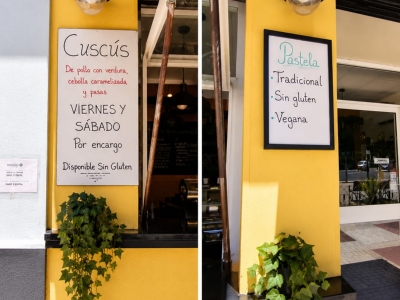 Cuscús
De pollo con verdura,
cebolla caramelizada
y pasas
VIERNES Y
SÁBADO
Por encargo
Disponible Sin Gluten
Pastela
· Tradicional
· Sin gluten
· Vegana